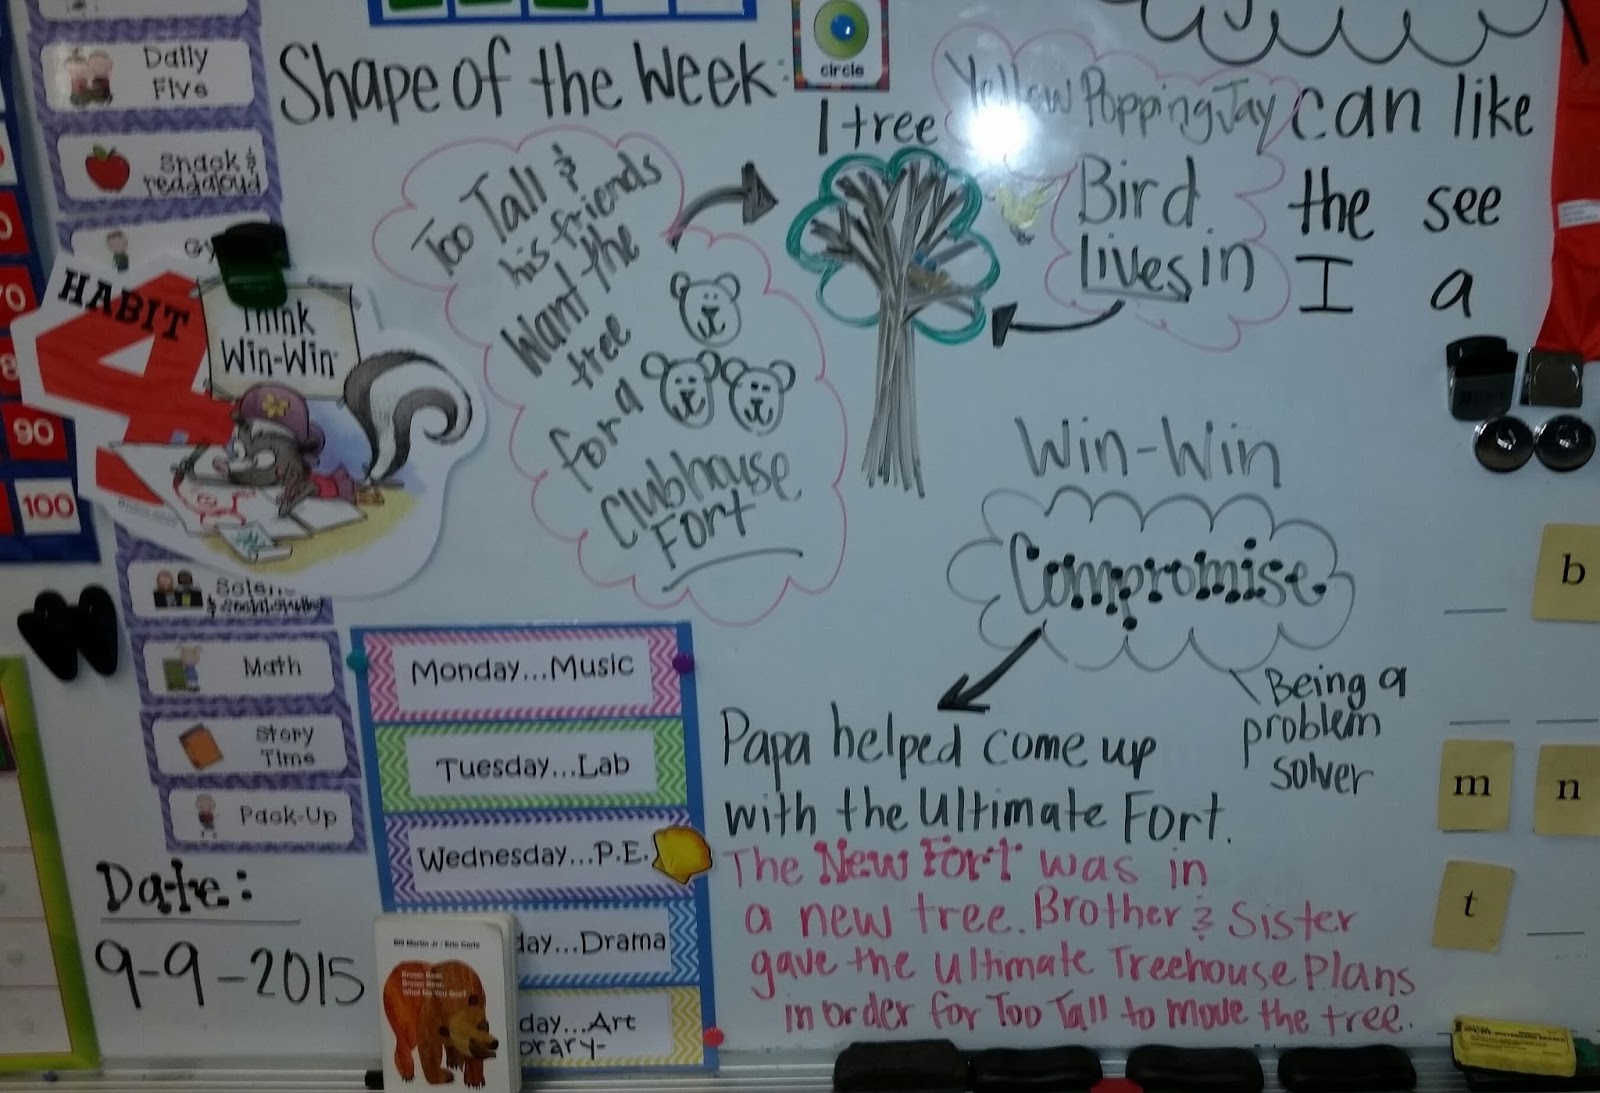 Daily
Five
Snack &
readaloud
HABIT
4
Think
Win-Win
Math
Story
Time
Pack-Up
Date:
9-9-2015
70
90
100
Shape of the Week:
circle
Too Tall &
his friends
Want the
tree
for a
Clubhouse
Fort
1 tree
Yellow Popping Jay
Bird
lives in
can like
the see
I a
Win-Win
Compromise
Being a
problem
solver
Papa helped come up
with the Ultimate Fort.
The New Fort was in
a new tree. Brother & Sister
gave the Ultimate Treehouse Plans
in order for Too Tall to move the tree.
Monday...Music
Tuesday...Lab
Wednesday...P.E.
day...Drama
day...Art
brary-
Bill Martin Jr / Eric Carle
Brown Bear,
Brown Bear,
What Do You See?
b
m n
t